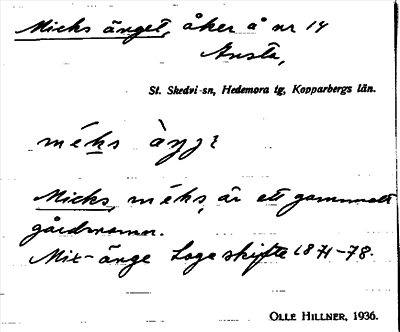 Micks änget, åker å nr 14
Ansta,
St. Skedvi sn, Hedemora tg, Kopparbergs län.
méks àŋŋə
Micks, méks, är ett gammalt
gårdsnamn.
Mix-änge Laga skifte 1871-78.
OLLE HILLNER, 1936.